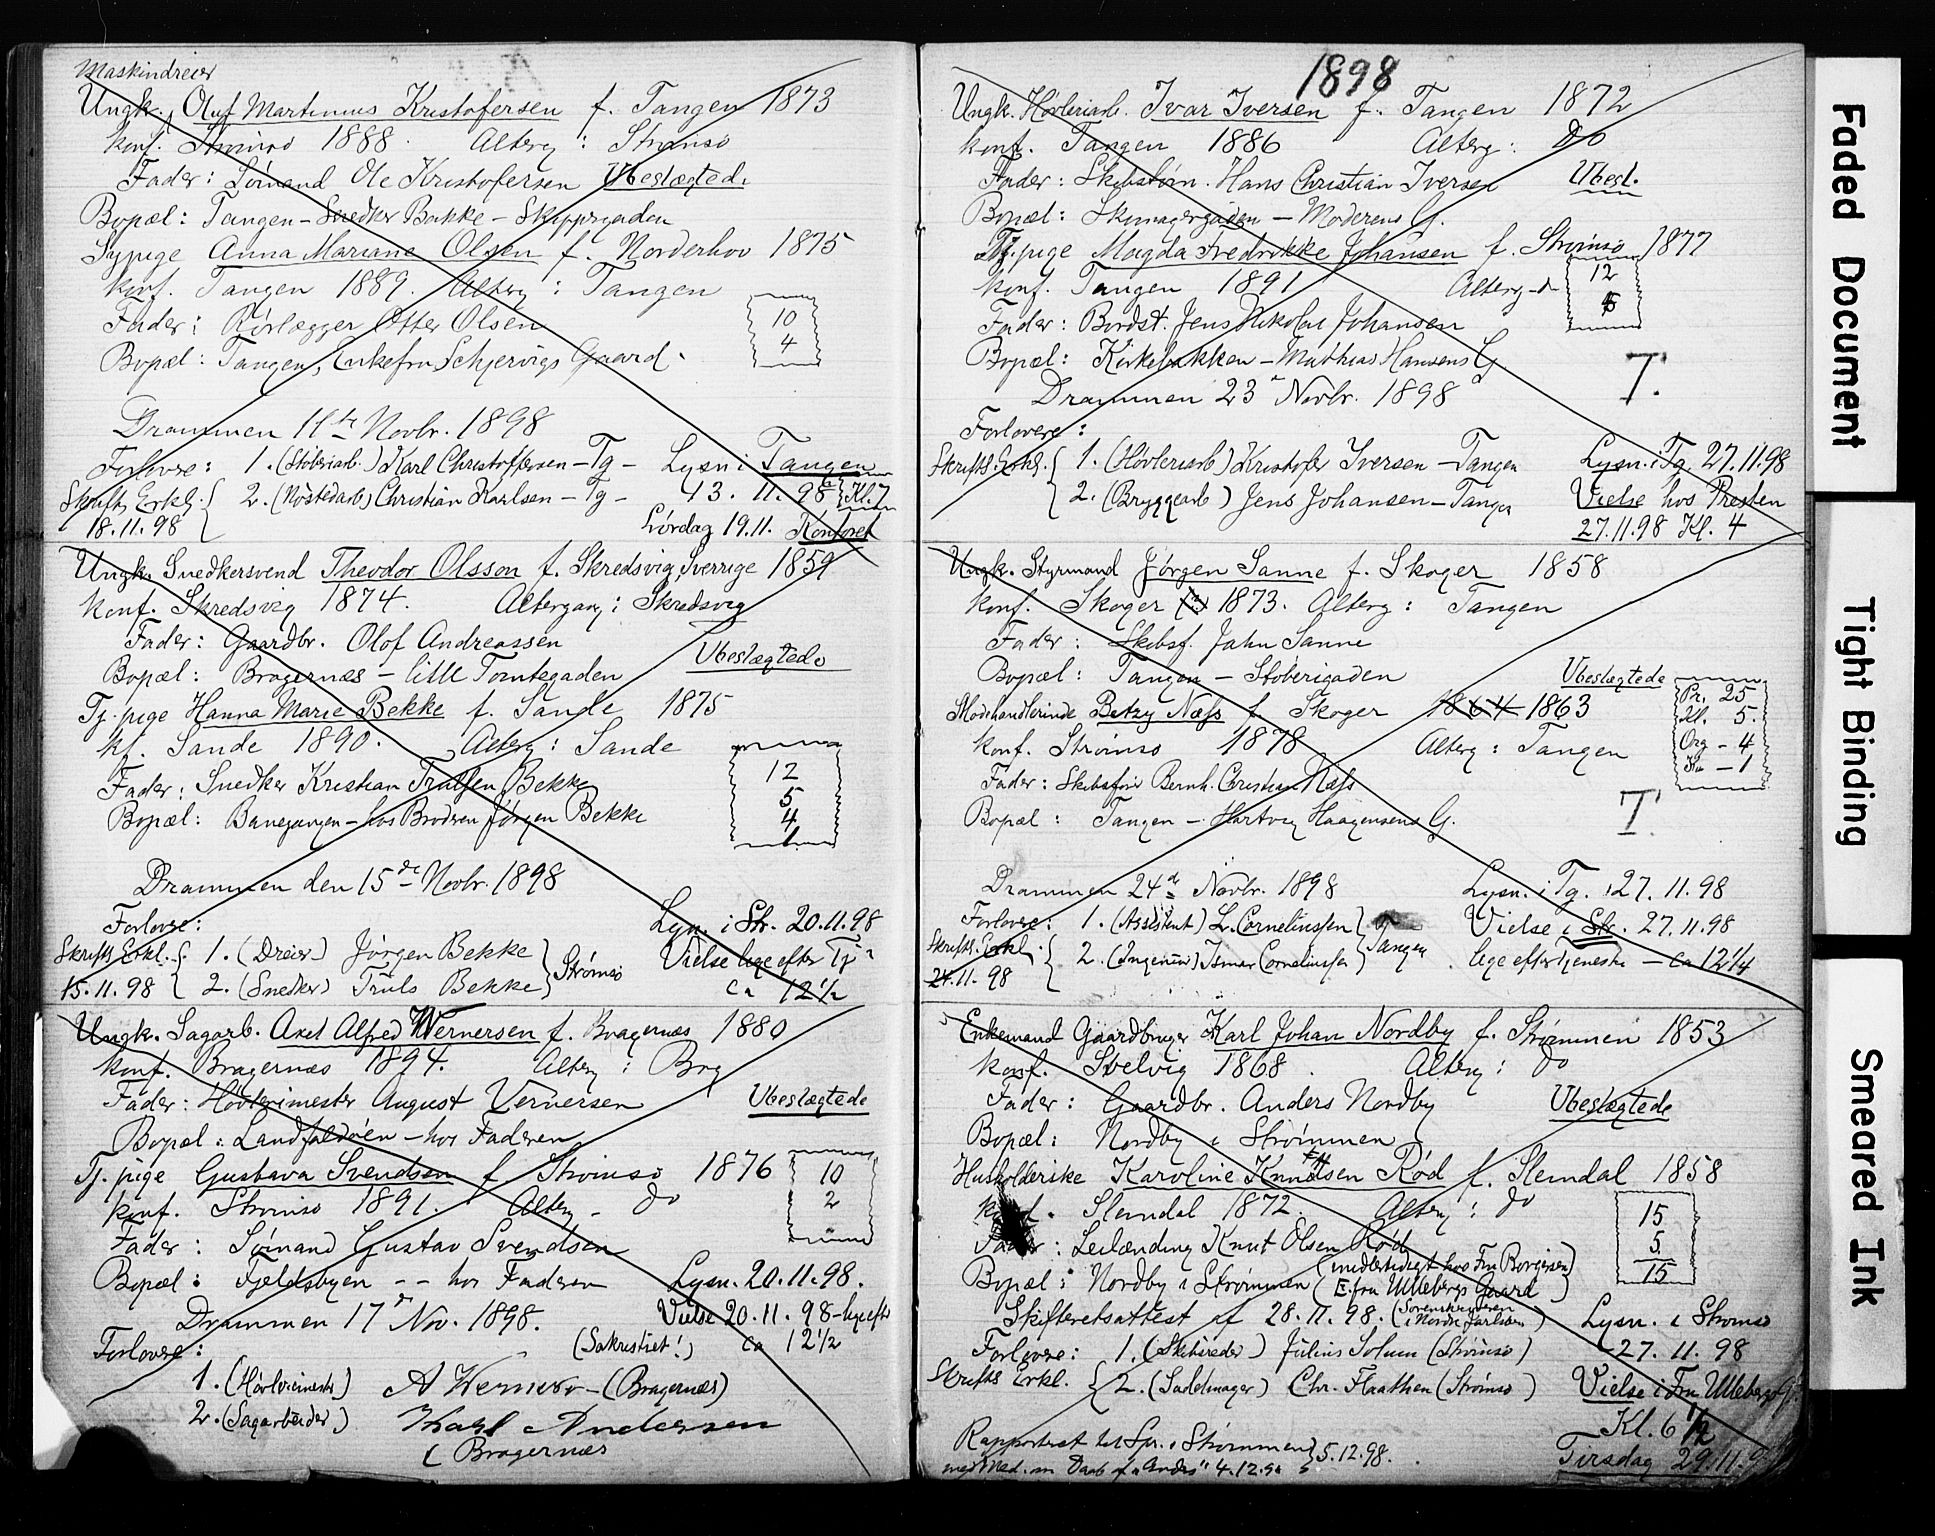 Maskindreier
Ungk. Oluf Martinius Kristofersen f. Tangen 1873
konf. Strømsø 1888. Alterg: Strømsø
Fader: Sømand Ole Kristofersen Ubeslægtede
Bopæl: Tangen - Snedker Bakke - Skippergaden
Sypige Anna Mariane Olsen f. Norderhov 1875
konf. Tangen 1889. Alterg: Tangen
Fader: Rørlægger Otter Olsen
10
4
Bopæl: Tangen, Enkefru Schjervigs Gaard.
Drammen 11te Novbr. 1898
Forlovere: 1. (Støberiarb.) Karl Christoffersen - Tg - Lysn i Tangen
Skriftl. Erkl. { 2. (Nøstedarb) Christian Karlsen - Tg - 13.11.98 Kl. 7
18.11.98 Lørdag 19.11. Kontoret
Ungk. Snedkersvend Theodor Olsson f. Skredsvig, Sverrige 1859
konf. Skredsvig 1874. Altergang: Skredsvig
Fader: Gaardbr. Olof Andreassen
Ubeslægtede
Bopæl: Bragernæs - lille Tomtegaden
Tj. pige Hanna Marie Bekke f. Sande 1875
kf. Sande 1890. Alterg: Sande
Fader: Snedker Kristian Trulsen Bekke
12
5
4
1
Bopæl: Banegangen - hos Broderen Jørgen Bekke
Drammen den 15de Novbr. 1898
Forlovere: Lysn. i Str. 20.11.98
Skriftl. Erkl. { 1. (Dreier) Jørgen Bekke } Strømsø Vielse lige efter Tj
15.11.98 { 2. (Snedker) Truls Bekke ca 12 1/2
Ungk. Sagarb. Axel Alfred Wernersen f. Bragernæs 1880
konf. Bragernæs 1894. Alterg: Brag
Fader: Høvlerimester August Vernersen Ubeslægtede
Bopæl: Landfaldøen - hos Faderen
Tj. pige Gustava Svendsen f Strømsø 1876
10
2
konf. Strømsø 1891. Alterg - do
Fader: Sømand Gustav Svendsen
Bopæl: Fjeldsbyen -- hos Faderen Lysn. 20.11.98.
Drammen 17de Nov. 1898. Vielse 20.11.98 - lige eft
Forlovere: (Sakristiet!) ca 12 1/2
1. (Høvlerimester) A Werner - (Bragernæs)
2. (Sagarbeider) Karl Andersen
(Bragernæs
1898
Ungk. Høvleriarb. Ivar Iversen f. Tangen 1872
konf. Tangen 1886 Alterg: Do
Fader: Skibstøm. Hans Christian Iversen Ubesl.
Bopæl: Skomagergaden - Moderens G.
Tj. pige Magda Fredrikke Johansen f. Strømsø 1877
konf. Tangen 1891 Alterg - d
12
5
Fader: Bordst. Jens Nikolai Johansen
Bopæl: Kirkebakken - Mathias Hansens G.
T.
Drammen 23de Novbr. 1898
Forlovere:
Skriftl. Erkl. { 1. (Høvleriarb) Kristofer Iversen - Tangen Lysn. i Tg. 27.11.98
2. (Bryggearb) Jens Johansen - Tangen Vielse hos Presten
27.11.98 Kl. 4
Ungk. Styrmand Jørgen Sanne f. Skoger 1858
konf. Skoger 1873. Alterg: Tangen
Fader: Skibsf. Jahn Sanne
Bopæl: Tangen - Støberigaden Ubeslægtede
Modehandlerinde Betzy Næss f Skoger 1864 1863
Pr. 25
Kl. 5.
Org - 4
Ki - 1
konf. Strømsø 1878 Alterg: Tangen
Fader: Skibsfører Bernh. Christian Næss
Bopæl: Tangen - Hartvig Haagensens G.
T.
Drammen 24de Novbr. 1898 Lysn. i Tg. 27.11.98
Forlovere: 1. (Assistent) L. Corneliussen } Tangen Vielse i Str. 27.11.98
Skriftl. Erkl. { 2. (Ingeniør) Ismar Corneliussen lige efter Tjeneste - ca 12 1/4
24.11.98
Enkemand Gaardbruger Karl Johan Nordby f. Strømmen 1853
konf. Svelvig 1868. Alterg: do
Fader: Gaardbr. Anders Nordby Ubeslægtede
Bopæl: Nordby i Strømmen
Husholderske Karoline Knudsen Rød f. Slemdal 1858
konf. Slemdal 1872. Alterg: do
15
5
15
Fader: Leilænding Knut Olsen Rød
Bopæl: Nordby i Strømmen (midlertidigt hos Fru Borgersen)
(E.fru Ullebergs Gaard)
Skifteretsattest af 28.11.98. (Sorenskriveren i Nordre Jarlsberg) Lysn. i Strømsø
Forlovere: 1. (Skibsreder) Julius Solum (Strømsø) 27.11.98
Skriftl. Erkl. { 2. (Sadelmager) Chr. Flaathen (Strømsø) Vielse i Fru Ullebergs G.
Kl. 6 1/2
Tirsdag 29.11.9
Rapporteret til Spr. i Strømmen } 5.12.98.
med Med. om Daab af "Andrs" 4.12.98
Faded Document
Tight Binding
Smeared Ink